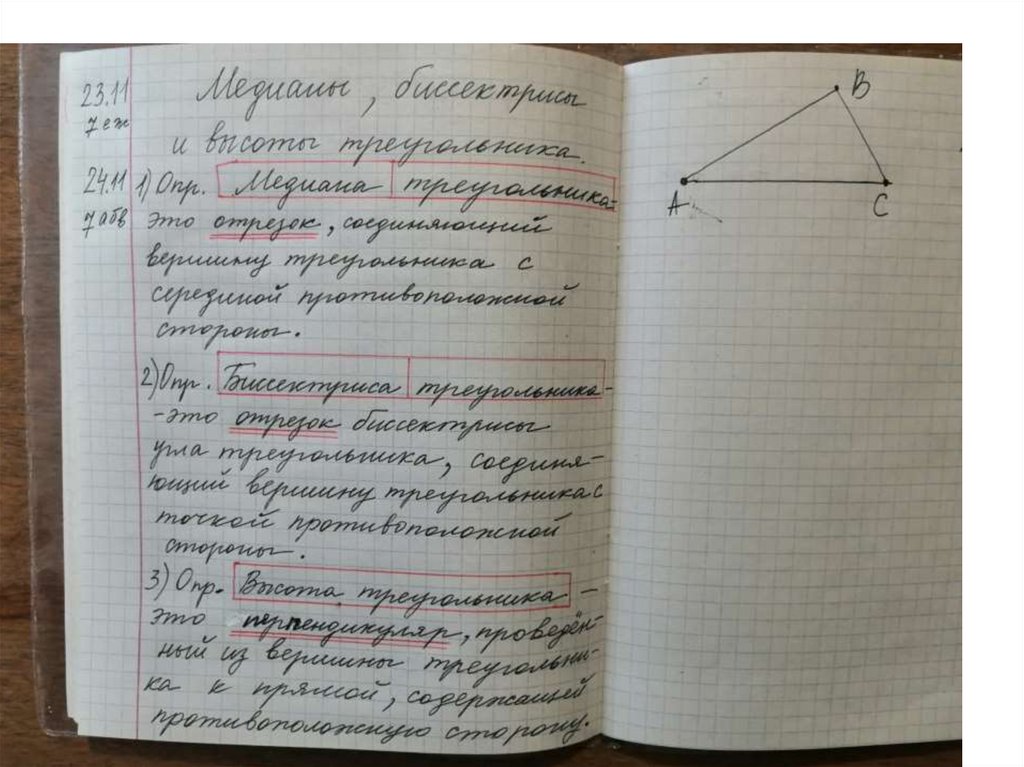 23.11
7 еж
Медианы, биссектрисы
и высоты треугольника.
24.11
7 абв
1) Опр. Медиана треугольника-
это отрезок, соединяющий
вершину треугольника с
серединой противоположной
стороны.
2) Опр. Биссектриса треугольника-
-это отрезок биссектрисы
угла треугольника, соединя-
ющий вершину треугольника с
точкой противоположной
стороны.
3) Опр. Высота треугольника -
это перпендикуляр, проведён-
ный из вершины треугольни-
ка к прямой, содержащей
противоположную сторону.
B
A
C